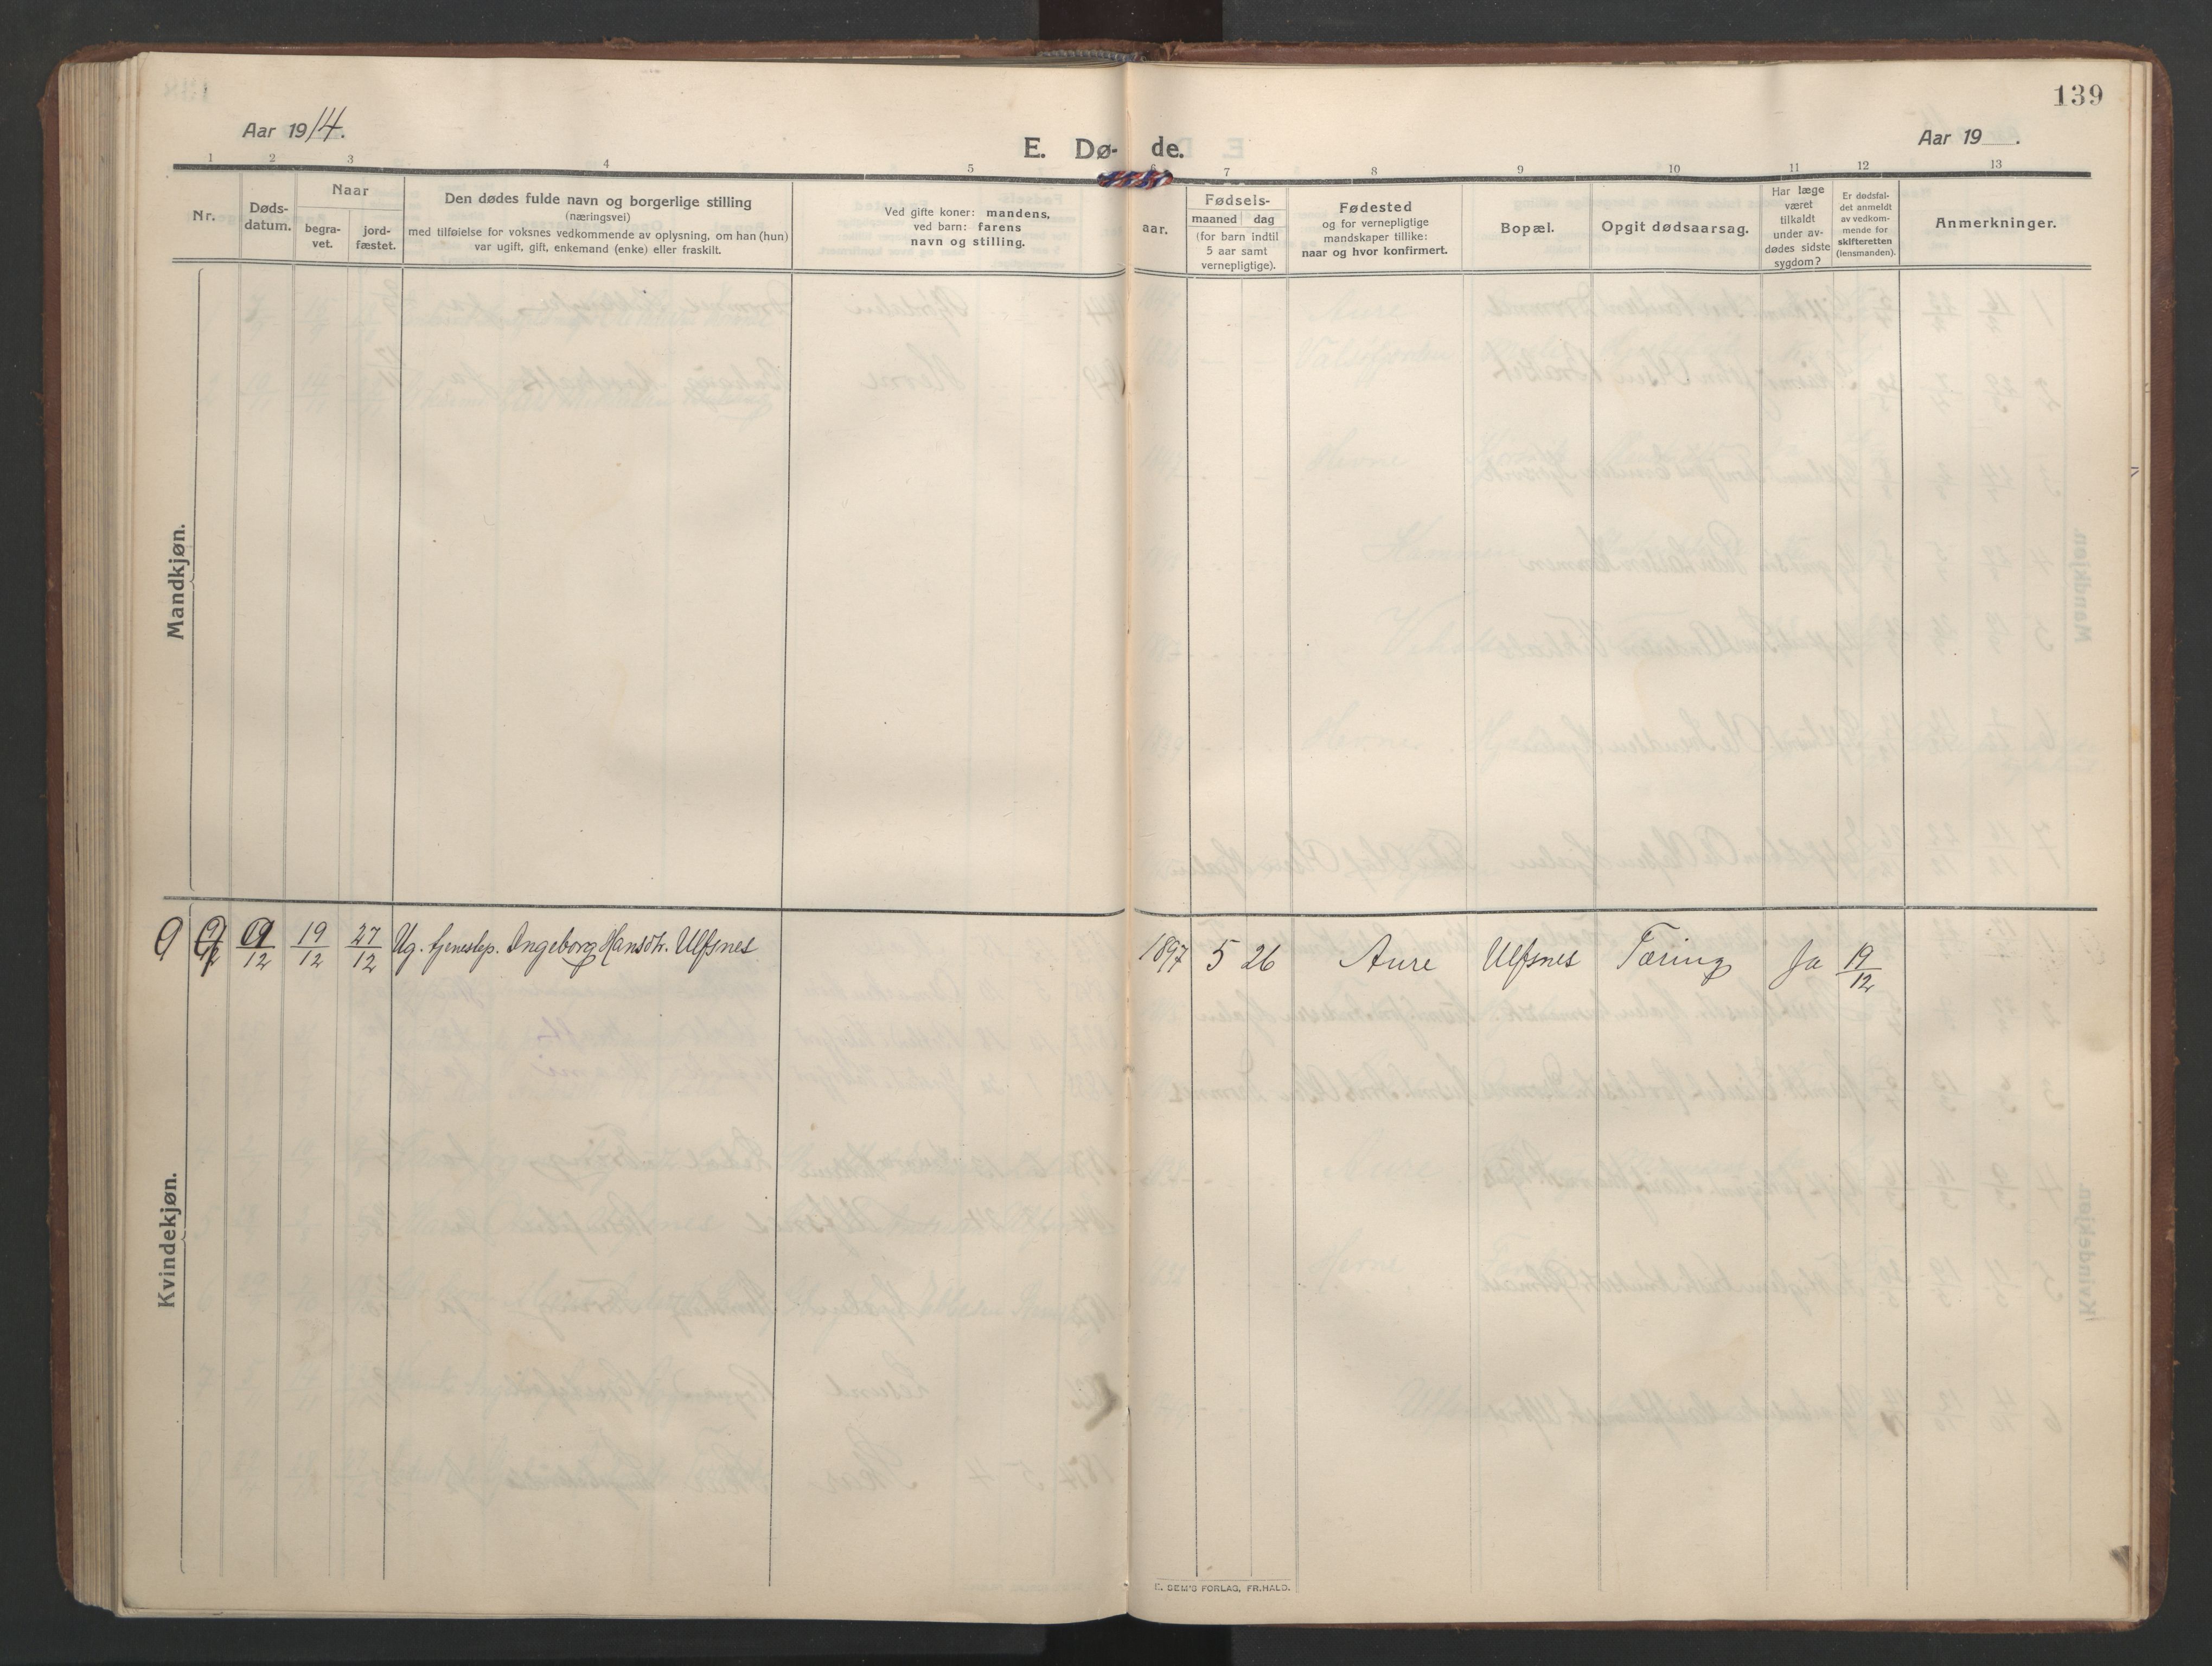 139
Aar 1914.
E. Dø- de.
Aar 19 .
1 2 3 4 5 6 7 8 9 10 11 12 13
Nr.
Døds-
datum.
Naar
begra-
vet.
jord-
fæstet.
Den dødes fulde navn og borgerlige stilling
(næringsvei)
med tilføielse for voksnes vedkommende av oplysning, om han (hun)
var ugift, gift, enkemand (enke) eller fraskilt.
Ved gifte koner: mandens,
ved barn: farens
navn og stilling.
aar.
Fødsels-
maaned dag
(for barn indtil
5 aar samt
vernepligtige).
Fødested
og for vernepligtige
mandskaper tillike:
naar og hvor konfirmert.
Bopæl.
Opgit dødsaarsag.
Har læge
været
tilkaldt
under av-
dødes sidste
sygdom?
Er dødsfal-
det anmeldt
av vedkom-
mende for
skifteretten
(lensmanden).
Anmerkninger.
Mandkjøn.
9 9/12 19/12 27/12 Ug. tjenestep. Ingeborg Hansdtr. Ulfsnes 1897 5 26 Aure Ulfsnes Tæring Ja 19/12
Kvindekjøn.
E. SEM'S FORLAG, FR.HALD.